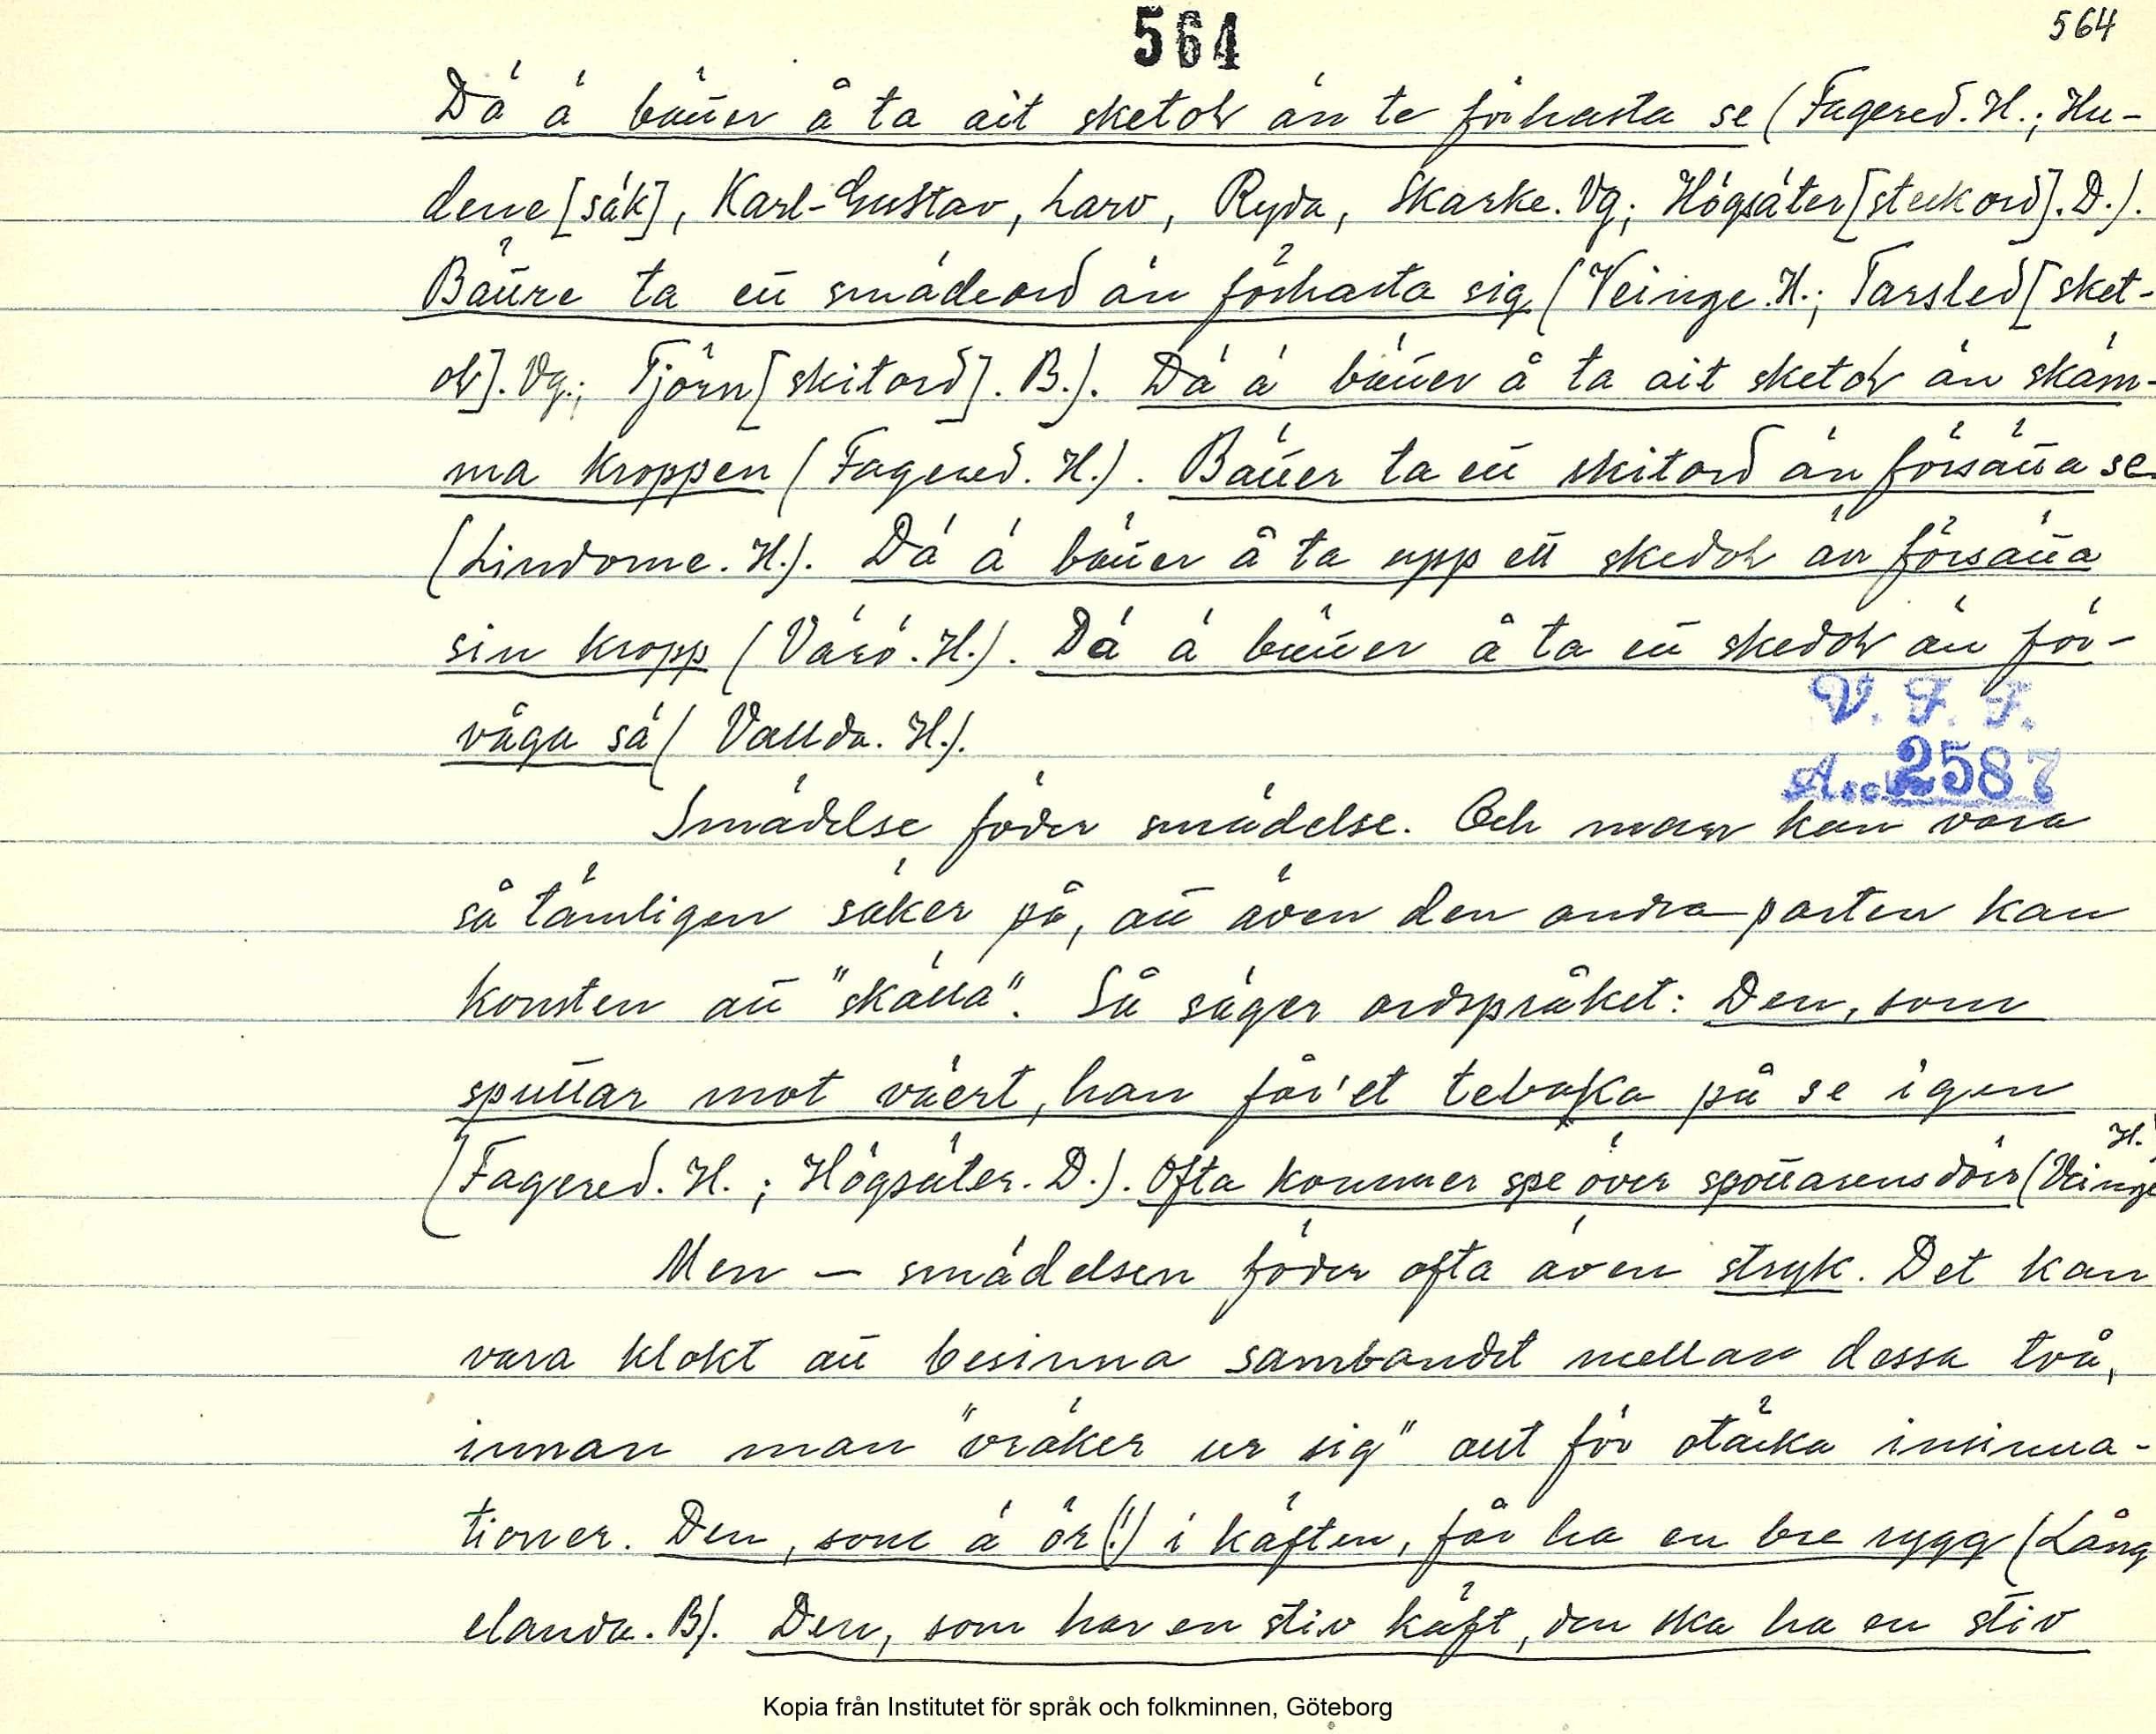 564
564
Dä ä bätter å ta ait sketoh än te förhasta se (Fagered. H.; Hu-
dene [säk], Karl-Gustav, Larv, Ryda, Skarke. Vg; Högsäter [steckord]. D.).
Bättre ta ett smädeord än förhasta sig (Veinge. H.; Tarsled [sket-
oh]. Vg.; Tjörn [skitord]. B.). Dä ä bätter å ta ait sketoh än skäm-
ma kroppen (Fagered. H.). Bätter ta ett skitord än försätta se
(Lindome. H.). Dä ä bätter å ta upp ett skedoh än försätta
sin kropp (Värö. H.). Dä ä bätter å ta ett skedoh än för-
våga sä (Vallda. H.).
V. F. F.
Acc. 2587
Smädelse föder smädelse. Och man kan vara
så tämligen säker på, att även den andra parten kan
konsten att "skälla". Så säger ordspråket: Den, som
sputtar mot väert, han får'et tebaka på se igen
(Fagered. H.; Högsäter. D.). Ofta kommer spe över spottarens dörr (Veinge H.)
Men – smädelsen föder ofta även stryk. Det kan
vara klokt att besinna sambandet mellan dessa två,
innan man "vräker ur sig" allt för otäcka insinua-
tioner. Den, som ä ör(!) i käften, får ha en bre rygg (Lång
elanda. B). Den, som har en stiv käft, den ska ha en stiv
Kopia från Institutet för språk och folkminnen, Göteborg